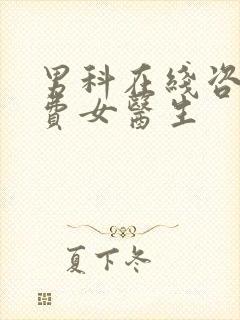 男科在綫咨
費女醫生
夏下冬